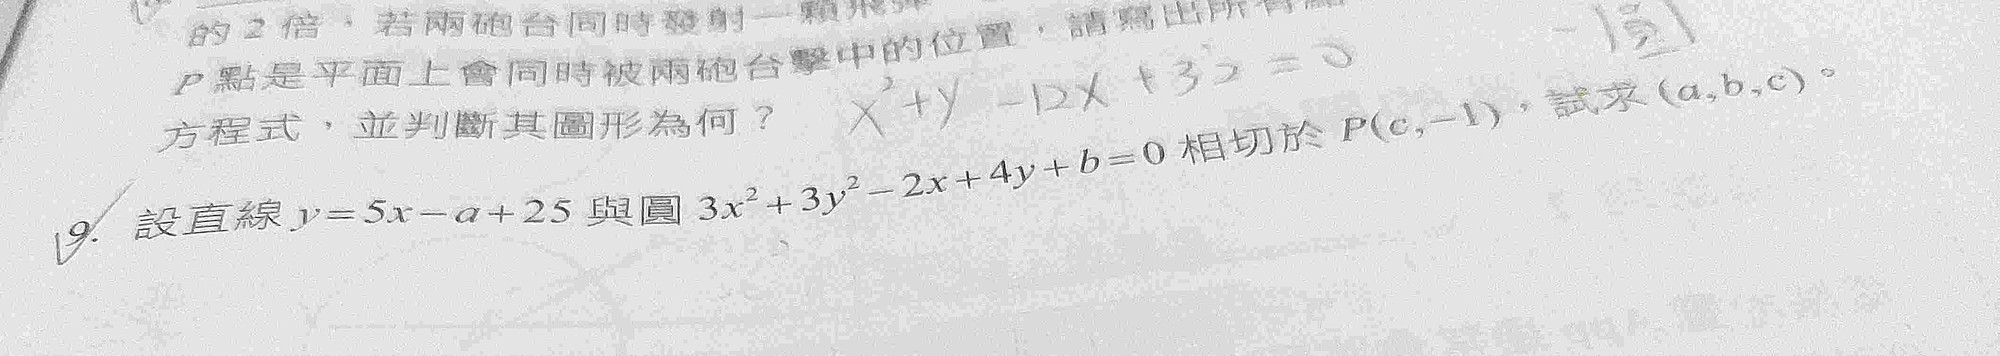 的2倍，若兩砲台同時發射一顆飛彈
P點是平面上會同時被兩砲台擊中的位置，請寫出所有
方程式，並判斷其圖形為何？ x²+y² -12x +32 = 0
-圓
19. 設直線 y=5x-a+25 與圓 3x²+3y²-2x+4y+b=0 相切於 P(c,-1)，試求(a,b,c)。